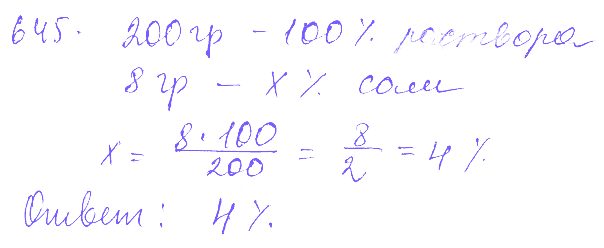 645. 200 гр – 100 % раствора
8 гр – x % соли
x = 8 · 100 / 200 = 8 / 2 = 4 %
Ответ: 4 %.